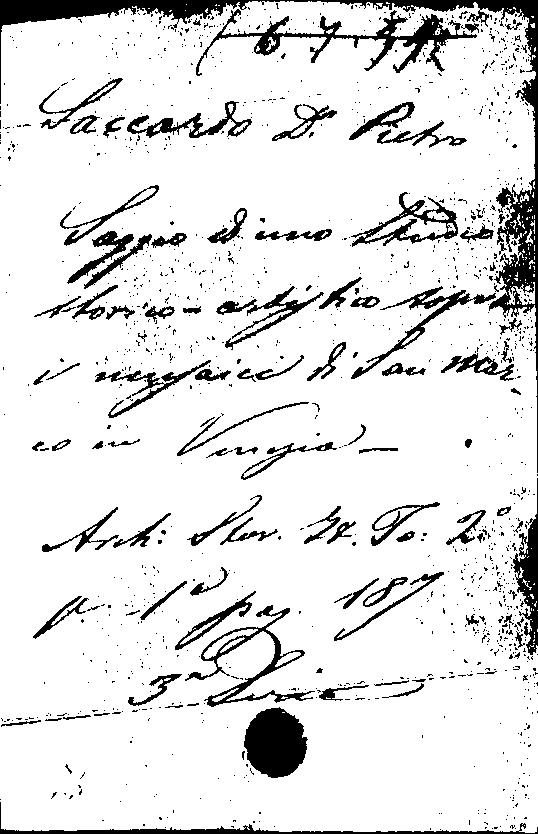 Saccardo Dr. Pietro
Saggio d'uno studio
storico-artistico sopra
i musaici di San Mar
co in Venezia —
Arch: Stor. It. To: 2°
p. 1a pag. 187
3a Serie